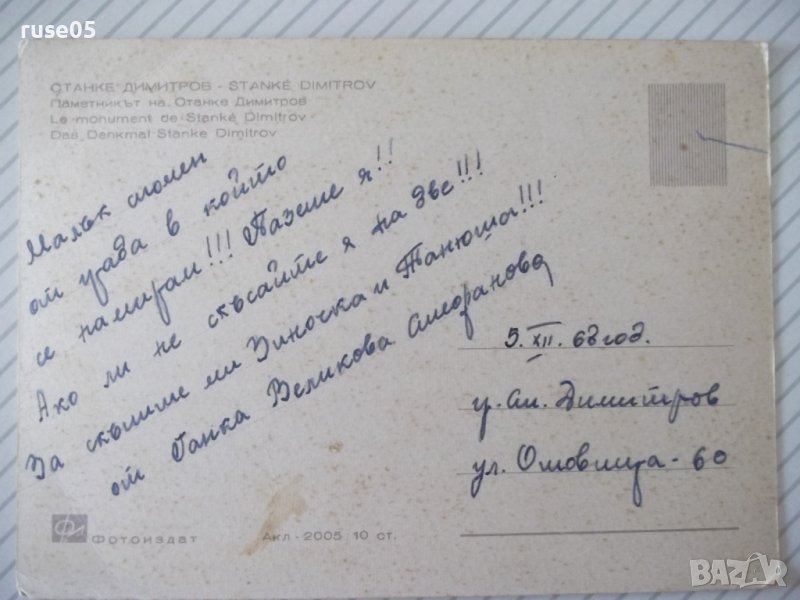 ruse05
СТАНКЕ ДИМИТРОВ - STANKÉ DIMITROV
Паметникът на Станке Димитров
Le monument de Stanké Dimitrov
Das Denkmal Stanke Dimitrov
Малък спомен
от града в който
се намирам!!! Пазете я!!
Ако ли не скъсайте я на две!!!
За скъпите ми Зиночка и Танюша!!!
от Ганка Великова
5. XII. 63 год.
гр. Ст. Димитров
ул. Осмовица - 60
Фотоиздат
Акл - 2005 10 ст.
BAZAR
bazar.bg